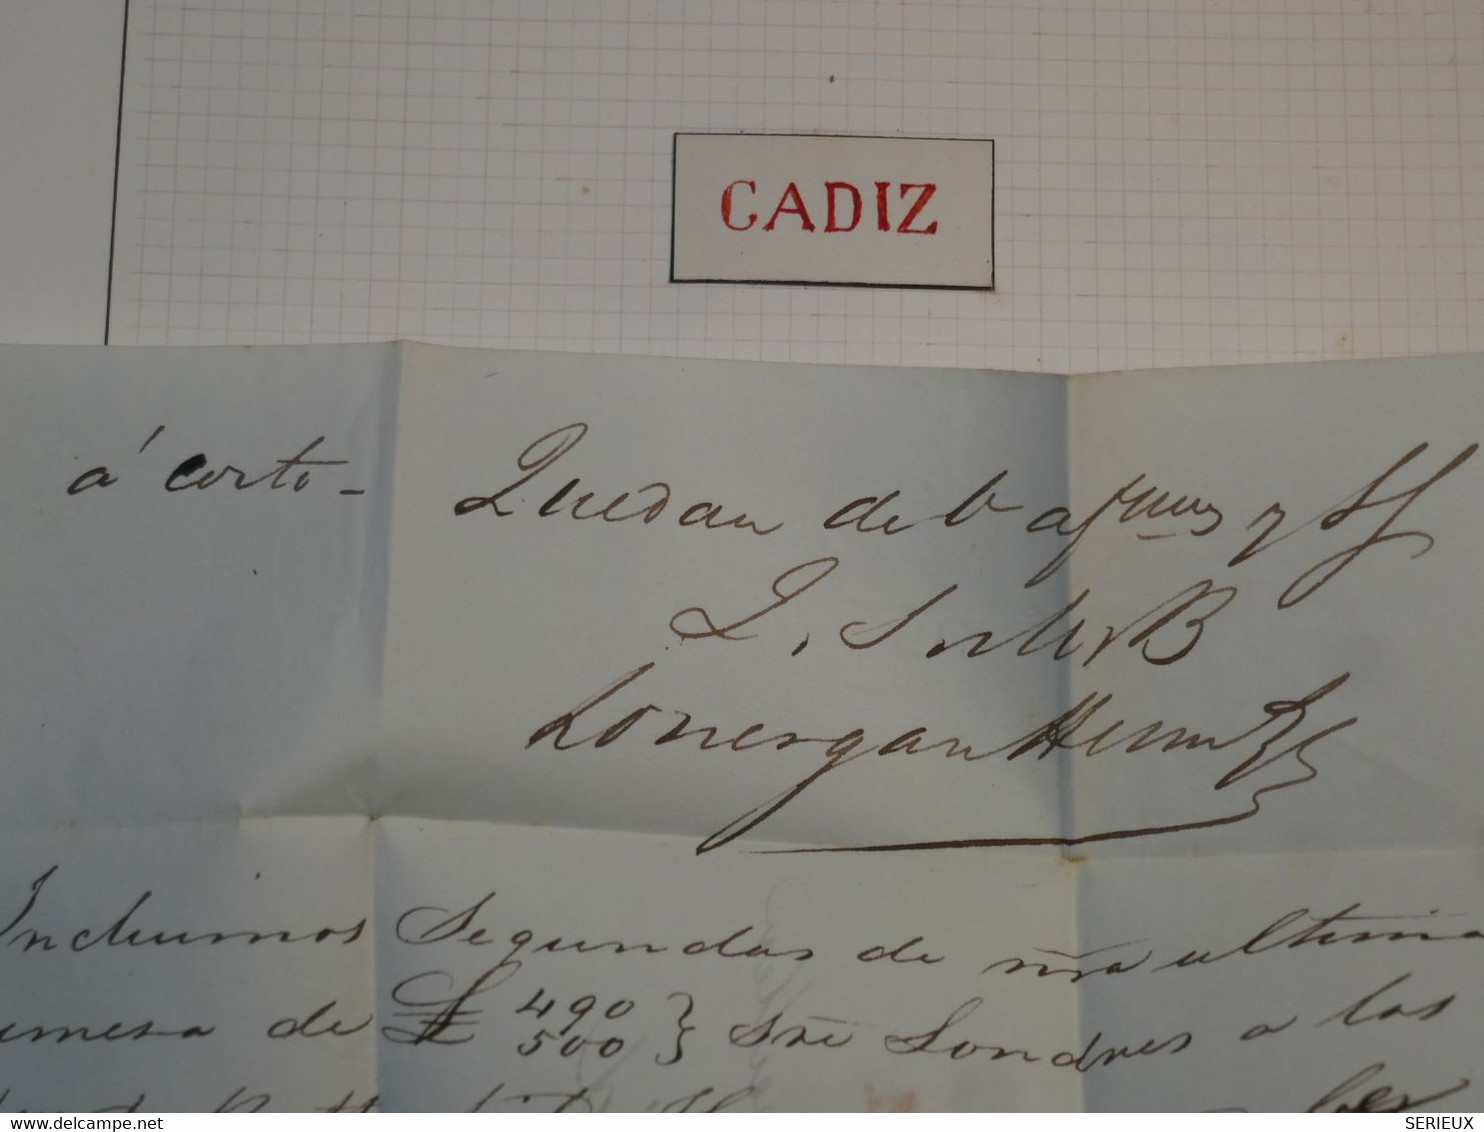 CADIZ
á corto - Quedan de V afmos y SS
Q. S. M. B
Lonergan Herm
Incluimos Segundas de nra ultima
de £ 490
500 } sre Londres a las
delcampe.net
SERIEUX